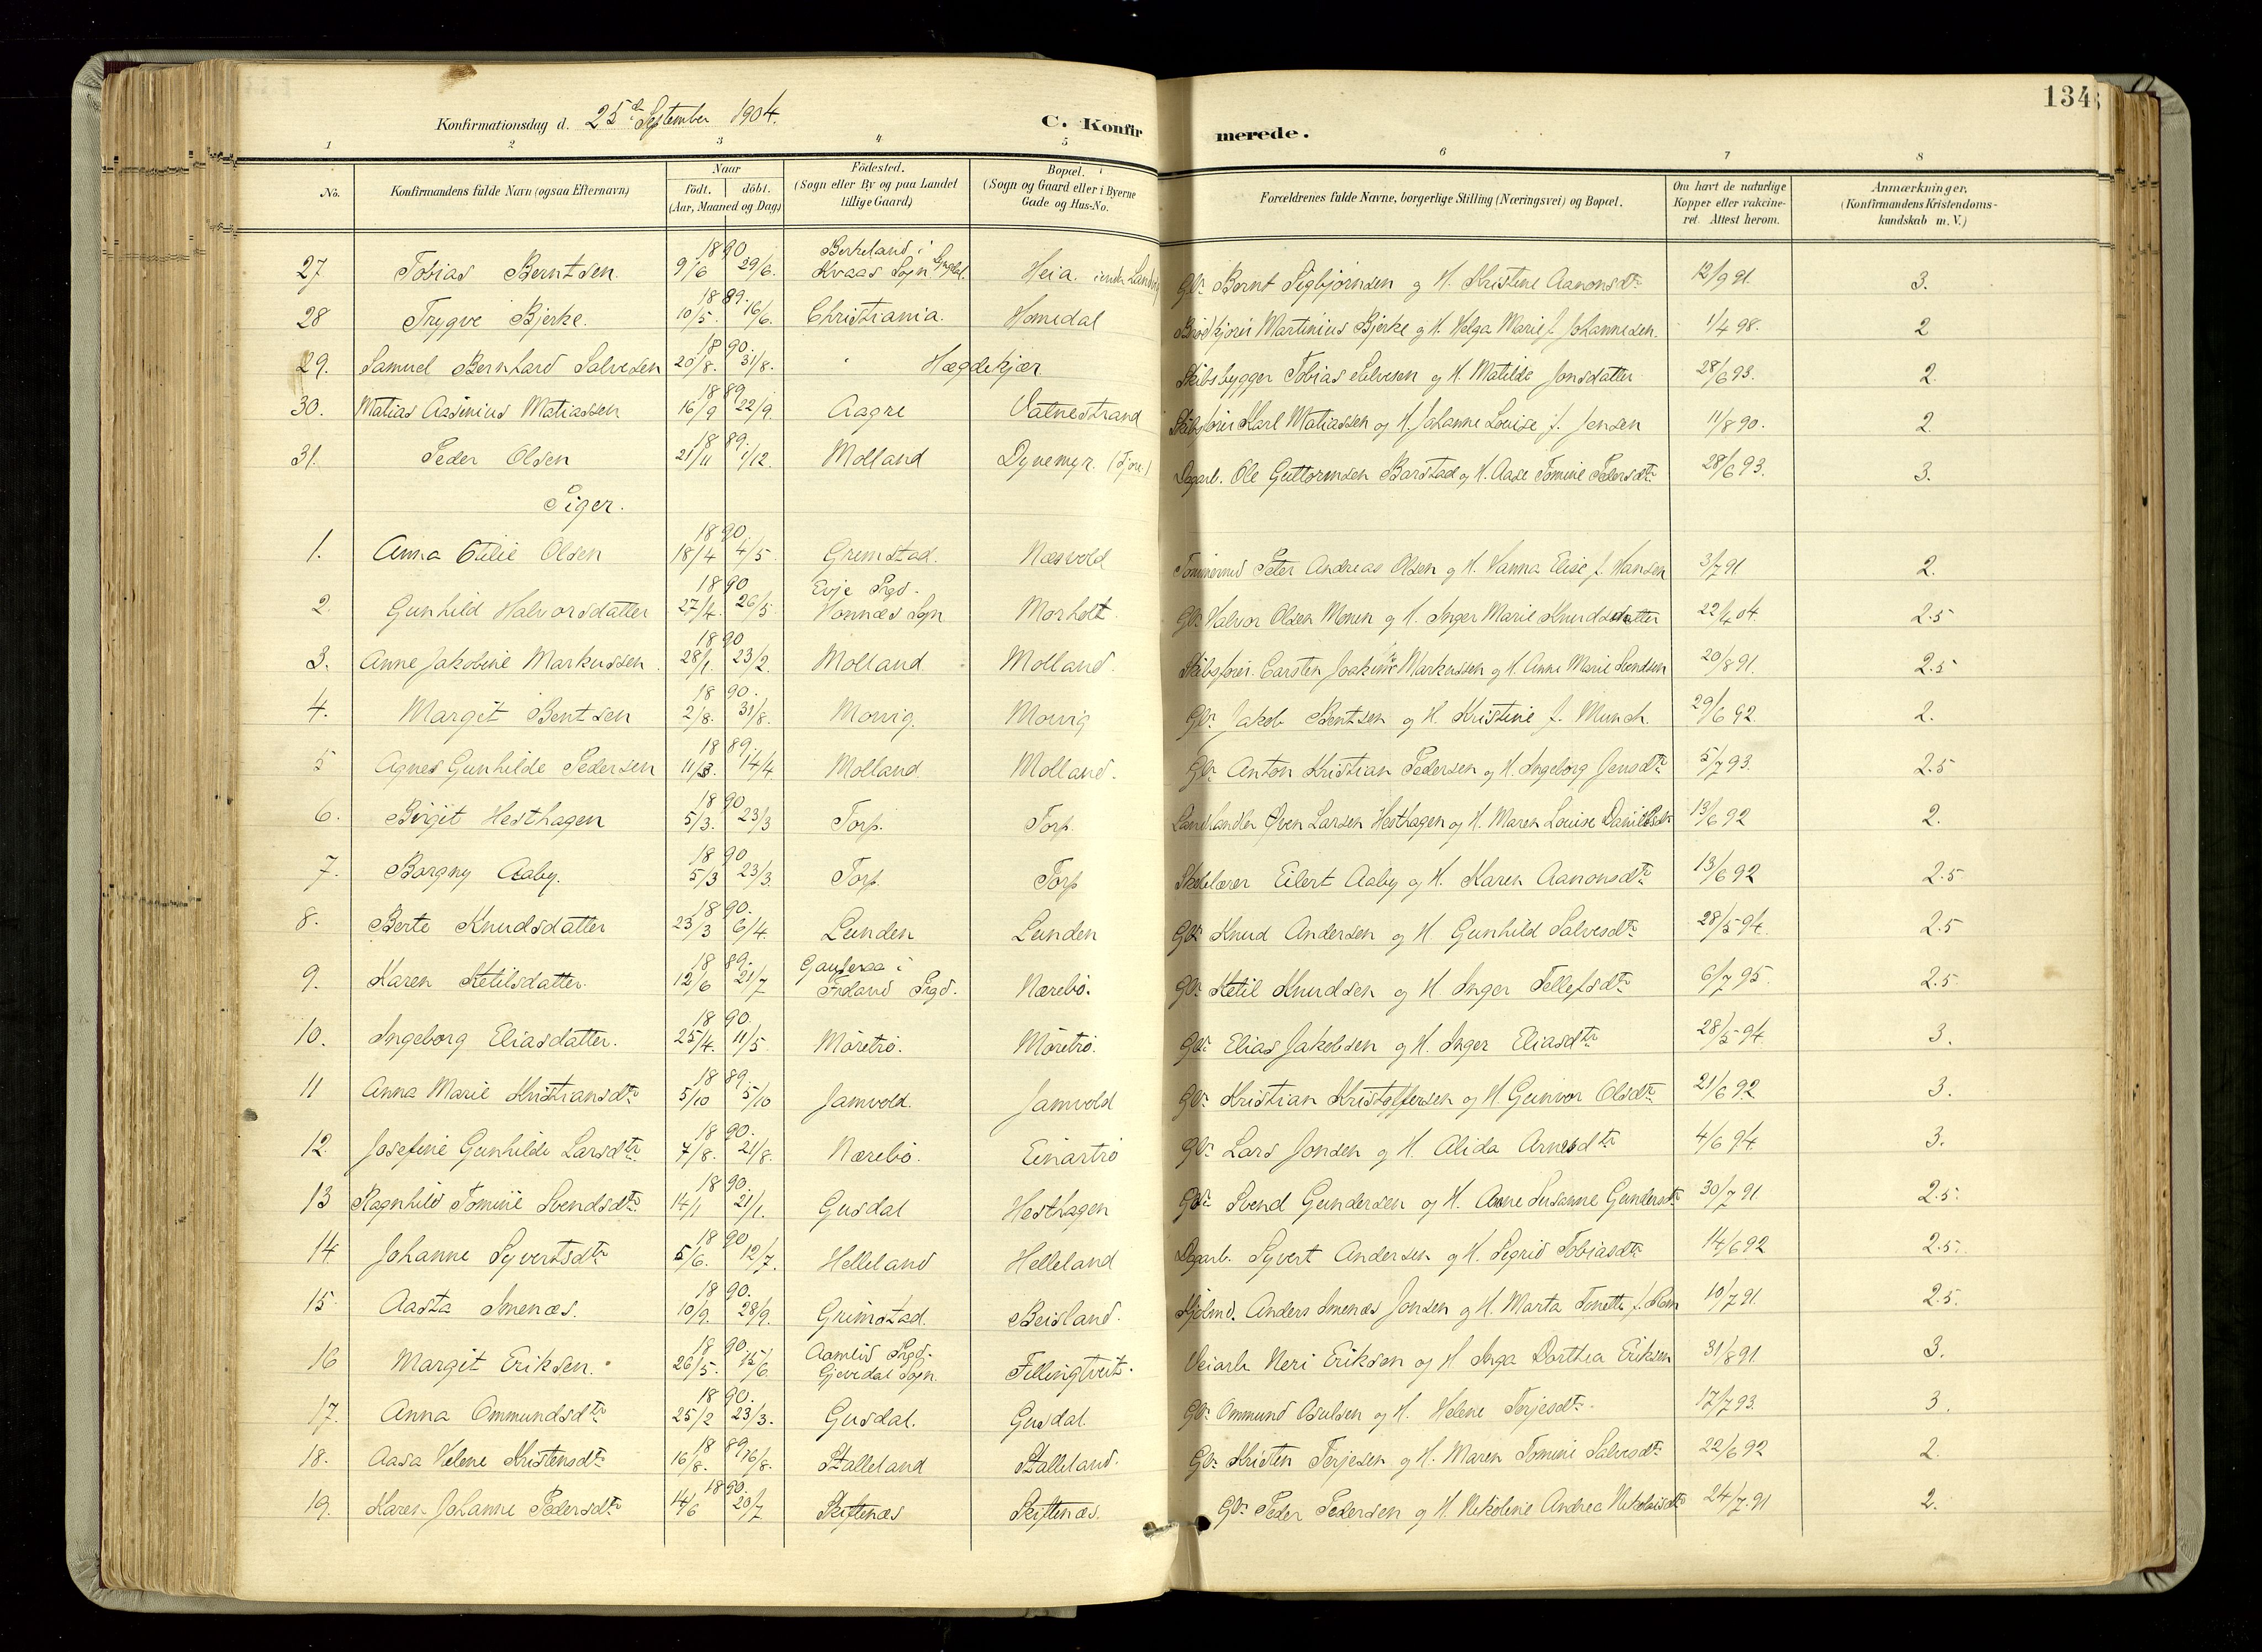 134
Konfirmationsdag d. 25de September 1904.
C. Konfirmerede.
1 2 3 4 5 6 7 8
No. Konfirmandens fulde Navn (ogsaa Efternavn) Naar födt. döbt. (Aar, Maaned og Dag) Födested. (Sogn eller By og paa Landet tillige Gaard) Bopæl. (Sogn og Gaard eller i Byerne Gade og Hus-No. Forældrenes fulde Navne, borgerlige Stilling (Næringsvei) og Bopæl. Om havt de naturlige Kopper eller vakcineret. Attest herom. Anmærkninger. (Konfirmandens Kristendomskundskab m. V.)
27 Tobias Berntsen. 1890 9/6 29/6. Birkeland i Kvaas Sogn Heia. Gbr. Bernt Sigbjørnsen og H. Kristine Aanonsdtr 12/9 91. 3.
28 Trygve Bjerke. 1889. 10/5. 16/6. Christiania. Homedal Martinius Bjerke og H. Helga Marie f. Johannesen. 1/4 98. 2
29. Samuel Bernhard Salvesen 1890. 20/8. 31/8. Hægdekjær Skibsbygger Tobias Salvesen og H. Matilde Jonsdatter 28/6 93. 2.
30. Matias Aasinius Matiassen 1889 16/9 22/9. Aagre Vatnestrand Skibsfører Karl Matiassen og H. Johanne Louise f. Jensen 11/8 90. 2.
31. Peder Olsen 1889. 21/11 1/12. Molland Dynemyr. (Fjære) Dagarb. Ole Guttormsen Barstad og H. Aase Tomine Pedersdtr 28/6 93. 3.
Piger.
1. Anna Otilie Olsen 1890. 18/4 4/5. Grimstad. Næsvold Tømmermd Peter Andreas Olsen og H. Hanna Elise f. Hansen 3/7 91 2.
2. Gunhild Halvorsdatter 1890 27/4. 26/5. Evje Prgd. Honnæs Sogn Morholt. Gbr. Halvor Olsen Monen og H. Inger Marie Knudsdatter 22/4 04. 2.5
3. Anne Jakobine Markussen. 1890 28/1. 23/2. Molland Molland. Skibsfører. Carsten Joakim Markussen og H. Anne Marie Svendsen 20/8 91. 2.5
4. Margit Bentsen 1890. 2/8. 31/8. Morvig. Morvig Gbr. Jakob Bentsen og H. Kristine f. Munch. 29/6 92. 2.
5 Agnes Gunhilde Pedersen 1889. 11/3. 14/4 Molland. Molland. Gbr. Anton Kristian Pedersen og H. Ingeborg Jensdtr 5/7 93. 2.5
6. Birgit Hesthagen 1890 5/3. 23/3 Torp. Torp. Landhandler Øven Larsen Hesthagen og H. Maren Louise Danielsdtr 13/6 92 2.
7. Borgny Aaby. 1890 5/3 23/3. Torp. Torp Skolelærer Eilert Aaby og H. Karen Aanonsdtr 13/6 92 2.5
8. Berte Knudsdatter 1890. 23/3 6/4. Lunden Lunden Gbr. Knud Andersen og H. Gunhild Salvesdtr 28/5 94. 2.5
9. Karen Ketilsdatter. 1889. 12/6 21/7 i Iveland Prgd. Nærebø. Gbr. Ketil Knudsen og H Inger Tellefsdtr 6/7 95. 2.5.
10. Ingeborg Eliasdatter. 1890. 25/4. 11/5. Möretrö. Möretrö. Gbr. Elias Jakobsen og H. Inger Eliasdtr 28/5 94. 3.
11 Anna Marie Kristiansdtr 1889. 5/10 5/10 Jamvold. Jamvold Gbr. Kristian Kristoffersen og H. Gunvor Olsdtr 21/6 92 3.
12. Josefine Gunhilde Larsdtr 1890. 7/8. 21/8. Nærebö. Einartrö Gbr. Lars Jonsen og H. Alida Arnesdtr 4/6 94. 3.
13 Ragnhild Tomine Svendsdtr 1890. 14/1 21/1. Gusdal Hesthagen Gbr. Svend Gundersen og H. Anne Susanne Gundersdtr 30/7 91 2.5.
14. Johanne Syvertsdtr 1890 5/6. 12/7. Helleland Helleland Dagarb. Syvert Andersen og H. Sigrid Tobiasdtr 14/6 92 2.5.
15. Aasta Smenæs. 1890. 10/9. 28/9. Grimstad. Beisland. Anders Smenæs Jonsen og H. Marta Tonette f. 10/7 91. 2.5.
16 Margit Eriksen. 1890. 26/5. 15/6. Aamlid Prgd. Gjøvdal Sogn Fillingtveit. Veiarb. Neri Eriksen og H Inga Dorthea Eriksen 31/8 91 3.
17. Anna Ommundsdtr 1890. 25/2 23/3. Gusdal. Gusdal. Gbr. Ommund Osulsen og H. Helene Terjesdtr 17/7 93. 3.
18. Aasa Helene Kristensdtr 1889. 16/8. 16/8. Stalleland Stalleland. Gbr. Kristen Terjesen og H. Maren Tomine Salvesdtr 22/6 92 2.
19. Karen Johanne Pedersdtr 1890. 14/6 20/7 Skiftenæs Skiftenæs. Gbr. Peder Pedersen og H. Nikoline Andrea Nikolaisdtr 24/7 91 2.